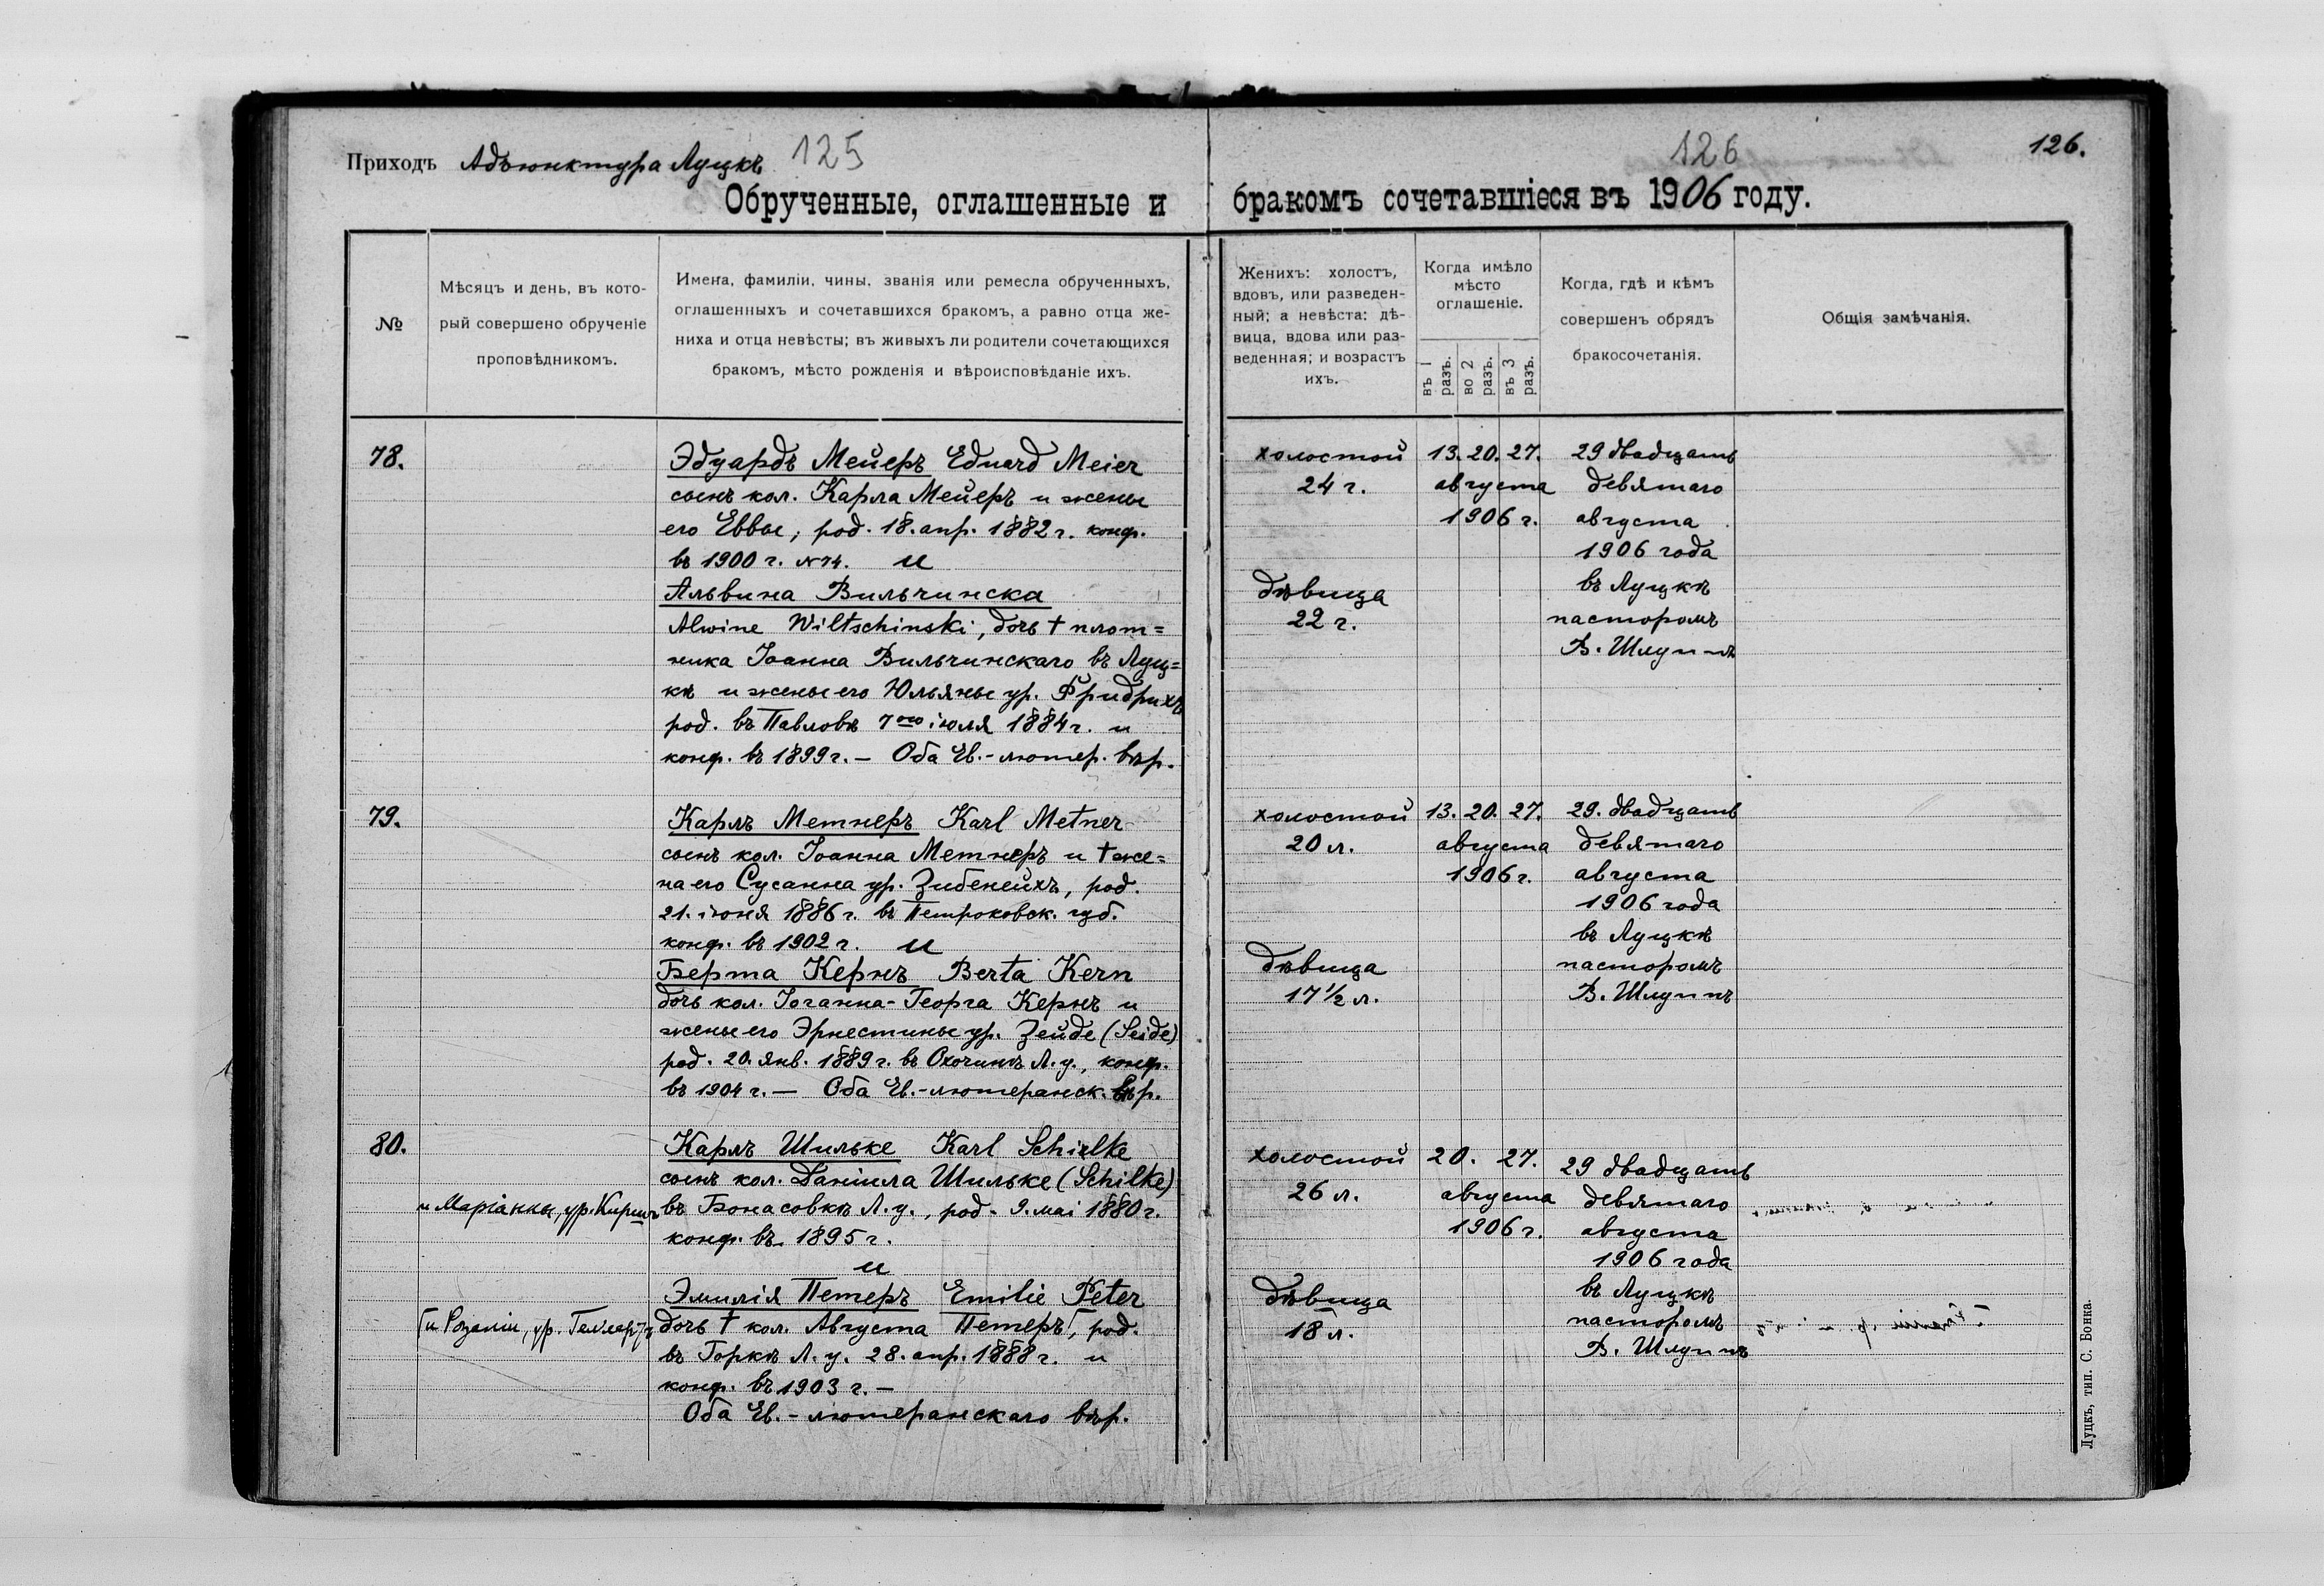 Приходъ Адъюнктура Луцкъ 125
126 126.
Обрученные, оглашенные и бракомъ сочетавшіеся въ 1906 году.
№
Мѣсяцъ и день, въ кото-
рый совершено обрученіе
проповѣдникомъ.
Имена, фамиліи, чины, званія или ремесла обрученныхъ,
оглашенныхъ и сочетавшихся бракомъ, а равно отца же-
ниха и отца невѣсты; въ живыхъ ли родители сочетающихся
бракомъ, мѣсто рожденія и вѣроисповѣданіе ихъ.
Женихъ: холостъ,
вдовъ, или разведен-
ный; а невѣста: дѣ-
вица, вдова или раз-
веденная; и возрастъ
ихъ.
Когда имѣло
мѣсто
оглашеніе.
въ 1
разъ.
во 2
разъ.
въ 3
разъ.
Когда, гдѣ и кѣмъ
совершенъ обрядъ
бракосочетанія.
Общія замѣчанія.
78.
Эдуардъ Мейеръ Eduard Meier
сынъ кол. Карла Мейеръ и жены
его Еввы, род. 18. апр. 1882 г. конф.
въ 1900 г. №74. и
Альвина Вильчинска
Alwine Wiltschinski, дочь † плот=
ника Іоанна Вильчинскаго въ Луц=
кѣ и жены его Юльяны ур. Фридрихъ
род. въ Павловкѣ 7ого іюля 1884 г. и
конф. въ 1899 г. — Оба Ев.-лютер. вѣр.
холостой
24 г.
дѣвица
22 г.
13. 20. 27.
августа
1906 г.
29 двадцать
девятаго
августа
1906 года
въ Луцкѣ
пасторомъ
В. Шлуппъ
79.
Карлъ Метнеръ Karl Metner
сынъ кол. Іоанна Метнеръ и † же=
на его Сусанна ур. Зибенейхъ, род.
21. іюня 1886 г. въ Петроковск. губ.
конф. въ 1902 г. и
Берта Кернъ Berta Kern
дочь кол. Іоганна-Георга Кернъ и
жены его Эрнестины ур. Зейде (Seide)
род. 20. янв. 1889 г. въ Охочинѣ Л. у., конф.
въ 1904 г. — Оба Ев.-лютеранск. вѣр.
холостой
20 л.
дѣвица
17 1/2 л.
13. 20. 27.
августа
1906 г.
29. двадцать
девятаго
августа
1906 года
въ Луцкѣ
пасторомъ
В. Шлуппъ
80.
Карлъ Шильке Karl Schielke
сынъ кол. Даніила Шильке (Schilke)
и Маріанны, ур. Киршъ въ Бонасовкѣ Л. у., род. 9. маі 1880 г.
конф. въ 1895 г.
и
Эмилія Петеръ Emilie Peter
дочь † кол. Августа Петеръ, род.
и Розаліи, ур.
въ Горкѣ Л. у. 28. апр. 1888 г. и
конф. въ 1903 г. —
Оба Ев.-лютеранскаго вѣр.
холостой
26 л.
дѣвица
18 л.
20. 27.
августа
1906 г.
29 двадцать
девятаго
августа
1906 года
въ Луцкѣ
пасторомъ
В. Шлуппъ
Луцкъ, тип. С. Бонка.